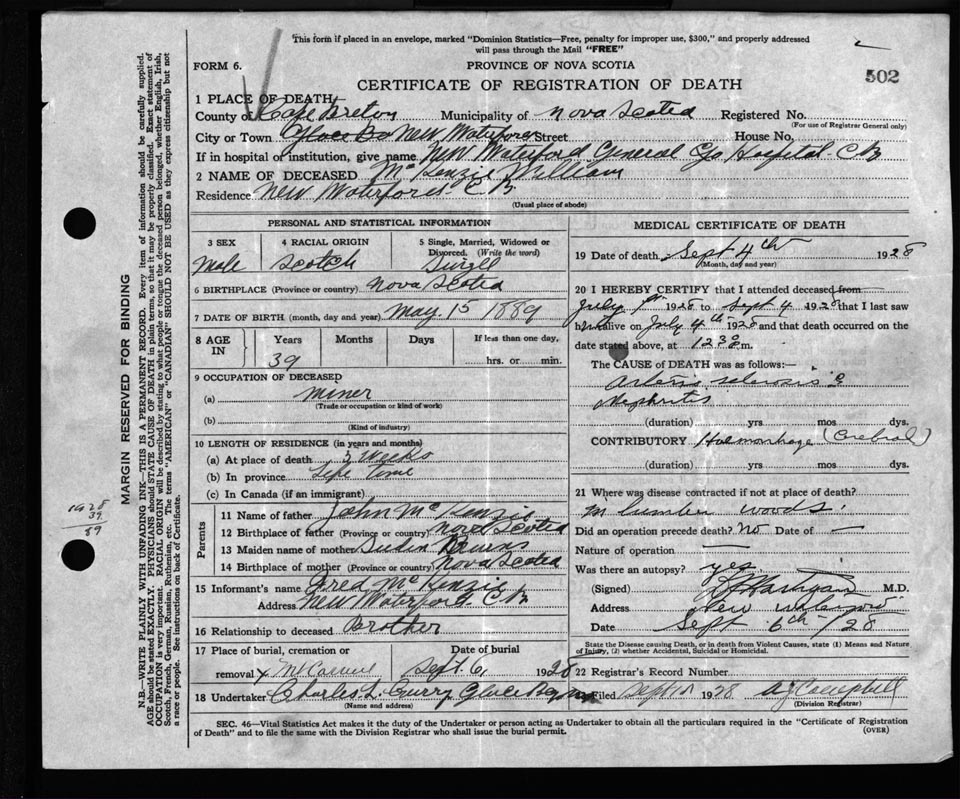 This form if placed in an envelope, marked "Dominion Statistics—Free, penalty for improper use, $300," and properly addressed
will pass through the Mail "FREE"
FORM 6.
PROVINCE OF NOVA SCOTIA
502
CERTIFICATE OF REGISTRATION OF DEATH
1 PLACE OF DEATH
County of Cape Breton Municipality of Nova Scotia Registered No.
(For use of Registrar General only)
City or Town New Waterford Street House No.
If in hospital or institution, give name New Waterford General Hospital C B
2 NAME OF DECEASED McKenzie William
Residence New Waterford C B
(Usual place of abode)
PERSONAL AND STATISTICAL INFORMATION
3 SEX 4 RACIAL ORIGIN 5 Single, Married, Widowed or Divorced. (Write the word)
Male Scotch
6 BIRTHPLACE (Province or country) Nova Scotia
7 DATE OF BIRTH (month, day and year) May 15 1889
8 AGE IN Years Months Days If less than one day,
39 hrs. or min.
9 OCCUPATION OF DECEASED
(a) miner
(Trade or occupation or kind of work)
(b)
(Kind of industry)
10 LENGTH OF RESIDENCE (in years and months)
(a) At place of death 3 weeks
(b) In province Life Time
(c) In Canada (if an immigrant)
Parents
11 Name of father John McKenzie
12 Birthplace of father (Province or country) Nova Scotia
13 Maiden name of mother
14 Birthplace of mother (Province or country) Nova Scotia
15 Informant's name Fred McKenzie
Address New Waterford C B
16 Relationship to deceased Brother
17 Place of burial, cremation or removal Date of burial
Sept. 6, 1928
18 Undertaker Charles L. Curry Glace Bay
(Name and address)
MEDICAL CERTIFICATE OF DEATH
19 Date of death Sept 4th 1928
(Month, day and year)
20 I HEREBY CERTIFY that I attended deceased from
July 1928 to Sept 4 1928 that I last saw
him alive on July 4th 1928 and that death occurred on the
date stated above, at 12 30 m.
The CAUSE of DEATH was as follows:—
Arterio sclerosis c
Nephritis
(duration) yrs mos dys.
CONTRIBUTORY Haemorrhage (Cerebral)
(duration) yrs mos dys.
21 Where was disease contracted if not at place of death?
In lumber woods.
Did an operation precede death? No Date of —
Nature of operation —
Was there an autopsy? yes.
(Signed) M.D.
Address New Waterford
Date Sept 6th /28
State the Disease causing Death, or in death from Violent Causes, state (1) Means and Nature
of Injury, (2) whether Accidental, Suicidal or Homicidal.
22 Registrar's Record Number
Filed Sept 15 1928 A J Campbell
(Division Registrar)
SEC. 46—Vital Statistics Act makes it the duty of the Undertaker or person acting as Undertaker to obtain all the particulars required in the "Certificate of Registration
of Death" and to file the same with the Division Registrar who shall issue the burial permit.
(OVER)
MARGIN RESERVED FOR BINDING
N.B.—WRITE PLAINLY WITH UNFADING INK—THIS IS A PERMANENT RECORD. Every item of information should be carefully supplied.
AGE should be stated EXACTLY. PHYSICIANS should STATE CAUSE OF DEATH in plain terms, so that it may be properly classified. Exact statement of
OCCUPATION is very important. RACIAL ORIGIN will be described by stating to what people or tongue the deceased person belonged, whether English, Irish,
Scotch, French, German, Russian, Ruthenian, etc. The terms "AMERICAN" or "CANADIAN" SHOULD NOT BE USED as they express citizenship but not
a race or people. See instructions on back of Certificate.
1928
39
89